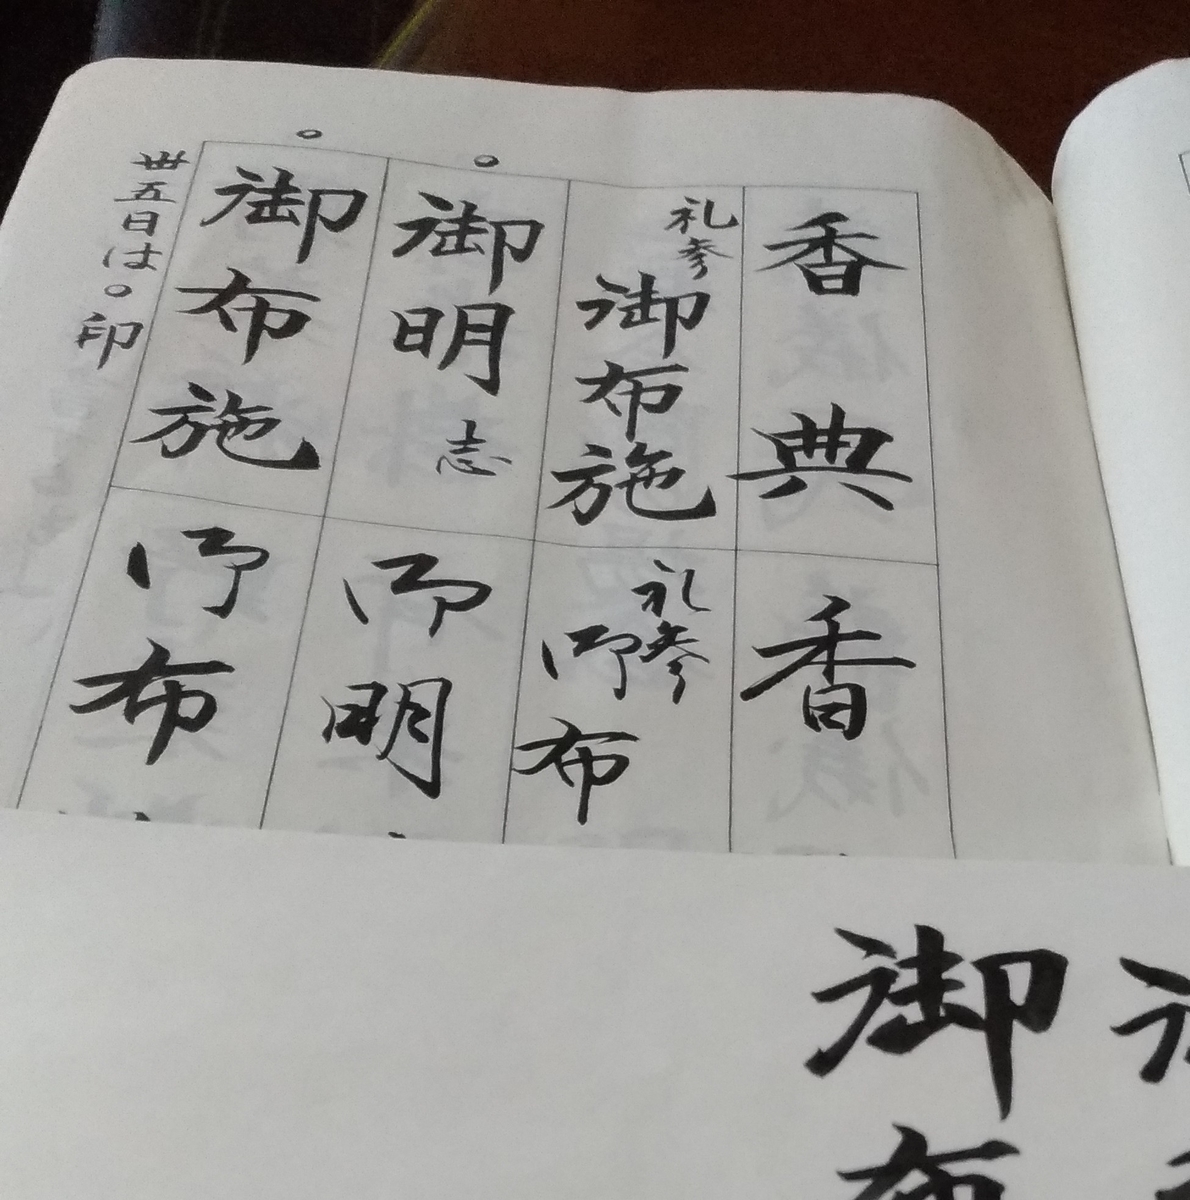 香典
礼参
御布施
御明
志
御布施
丗五日は○印
香
礼参
御布
御明
御布
御
布